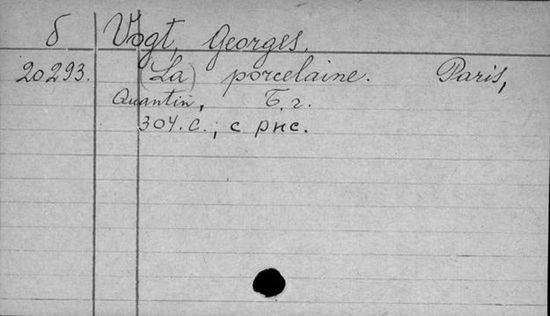 б Vogt, Georges.
20293. (La) porcelaine. Paris,
Quantin, Б. г.
304. с., с рис.